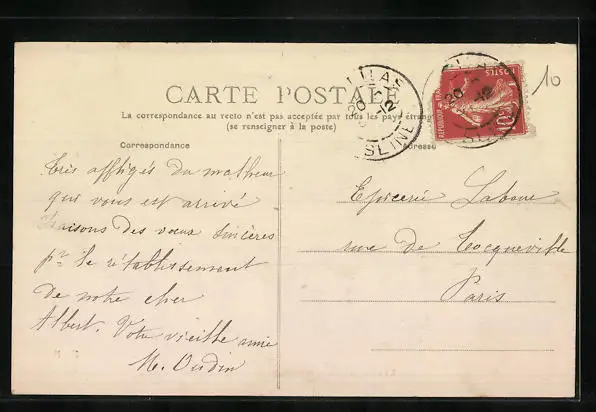 CARTE POSTALE
La correspondance au recto n'est pas acceptée par tous les pays étrangers
(se renseigner à la poste)
Correspondance
Adresse
Très affligés du malheur
qui vous est arrivé
faisons des vœux sincères
pr le rétablissement
de notre cher
Albert. Votre vieille amie
M. Oudin
Epicerie Laboue
rue de Tocqueville
Paris
LILAS
20
12
SEINE
POSTES
10